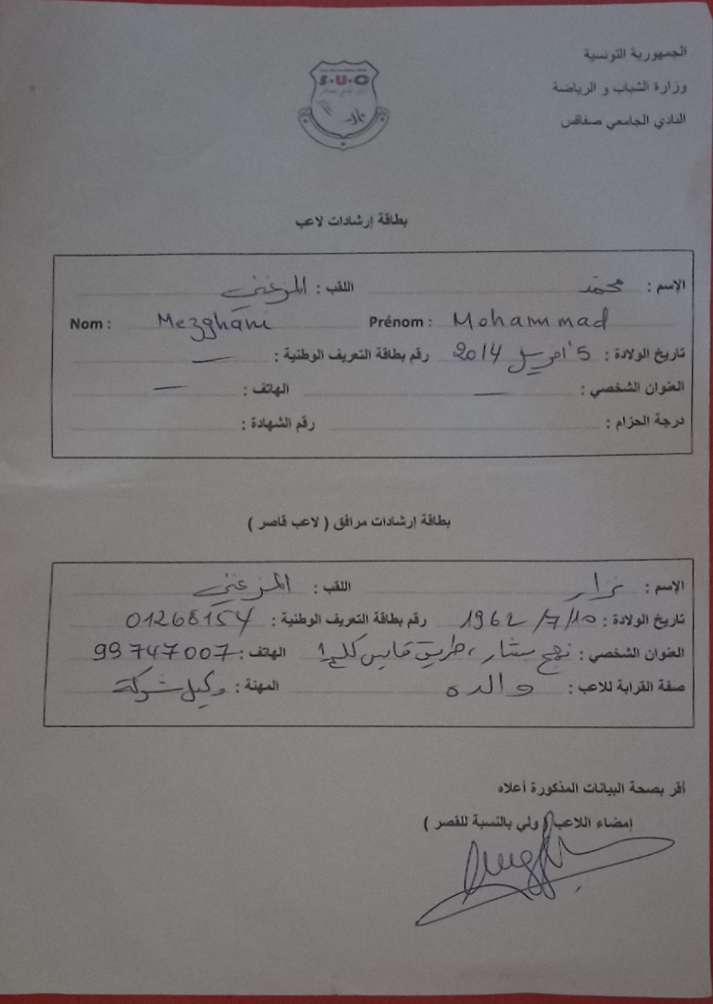 الجمهورية التونسية
وزارة الشباب و الرياضة
النادي الجامعي صفاقس
S.U.C
بطاقة إرشادات لاعب
الإسم : محمد اللقب : المزغني
Nom : Mezghani Prénom : Mohammad
تاريخ الولادة : 5 أفريل 2014 رقم بطاقة التعريف الوطنية : —
العنوان الشخصي : — الهاتف : —
درجة الحزام : رقم الشهادة :
بطاقة إرشادات مرافق ( لاعب قاصر )
الإسم : نزار اللقب : المزغني
تاريخ الولادة : 10/7/1962 رقم بطاقة التعريف الوطنية : 01268154
العنوان الشخصي : نهج ، طريق قابس كلم 1 الهاتف : 99747007
صفة القرابة للاعب : والده المهنة : وكيل شركة
أقر بصحة البيانات المذكورة أعلاه
إمضاء اللاعب ( ولي بالنسبة للقصر )